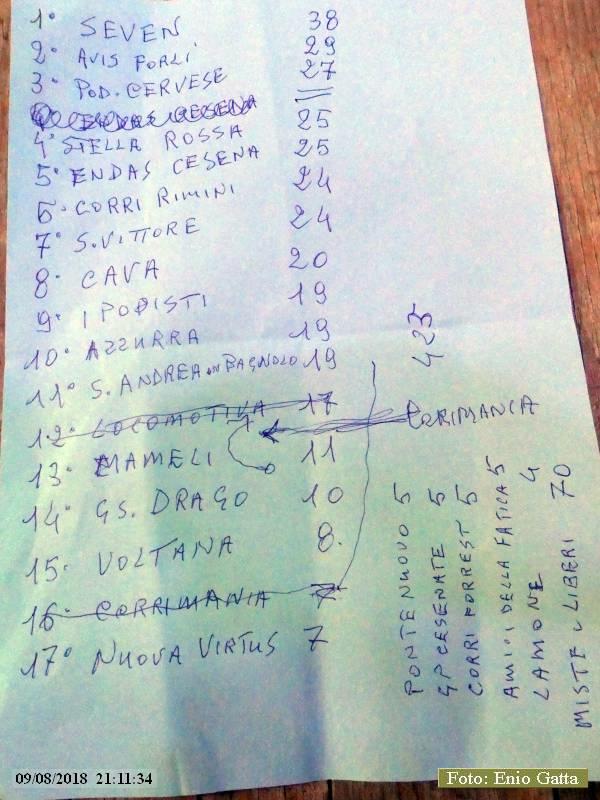 1° SEVEN 38
2° AVIS FORLÍ 29
3° POD. CERVESE 27
ENDAS CESENA
4° STELLA ROSSA 25
5° ENDAS CESENA 25
6° CORRI RIMINI 24
7° S. VITTORE 24
8° CAVA 20
9° I PODISTI 19
10° AZZURRA 19
11° S. ANDREA IN BAGNOLO 19
12° LOCOMOTIVA 17
CORRIMANIA
13° MAMELI 11
14° GS. DRAGO 10
15° VOLTANA 8.
16° CORRIMANIA 7
17° NUOVA VIRTUS 7
423
PONTE NUOVO 5
GP CESENATE 5
CORRI FORREST 5
AMICI DELLA FATICA 5
LAMONE 4
MISTE LIBERI 70
09/08/2018 21:11:34
Foto: Enio Gatta